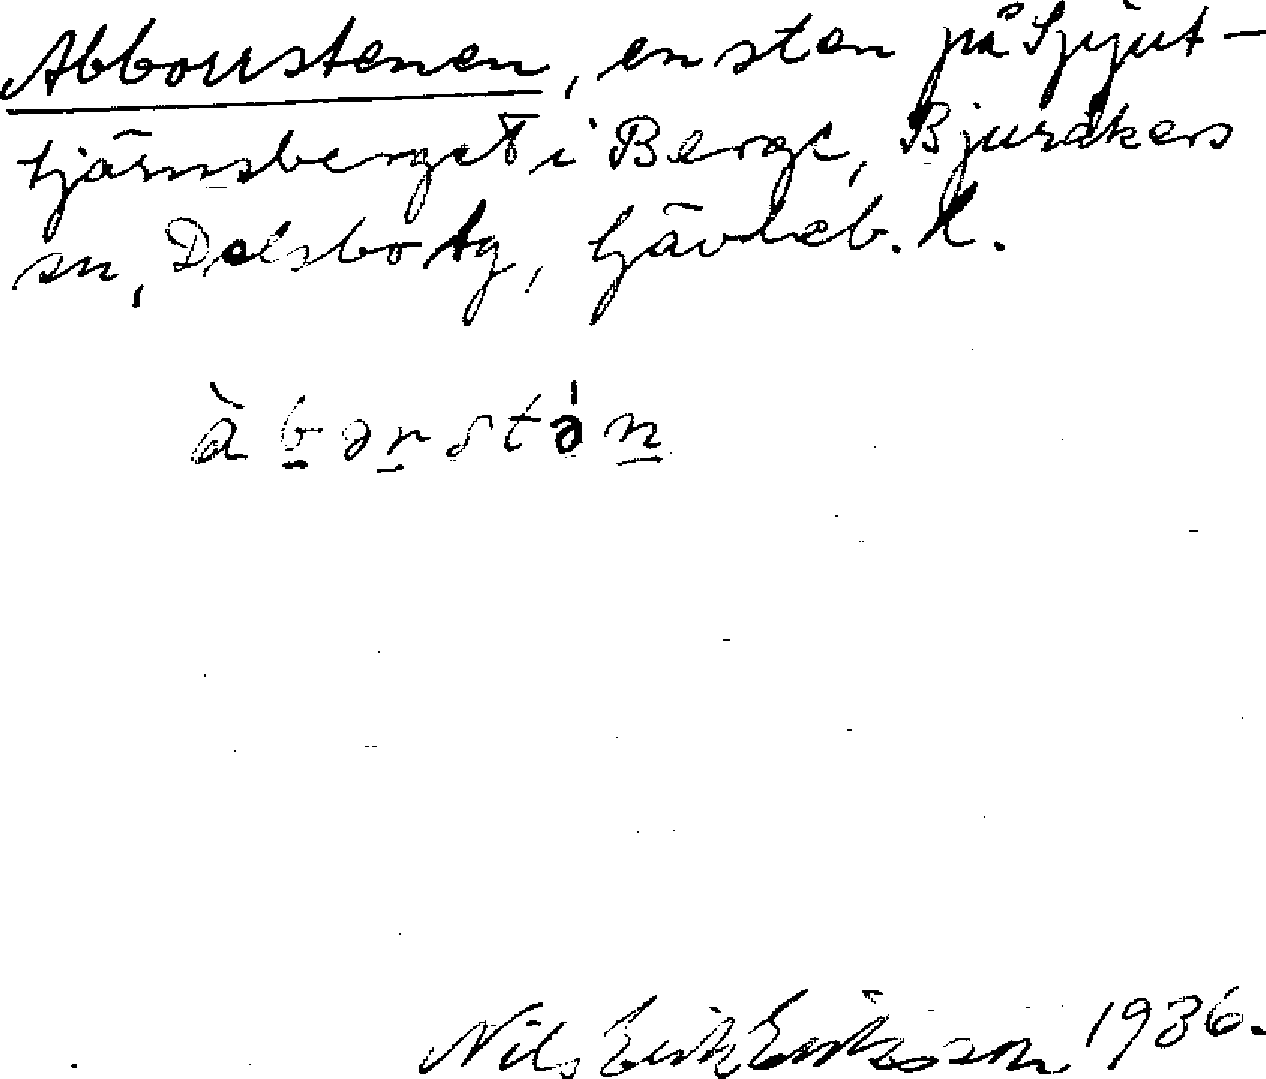 Abborrstenen, en sten på Spjut-
tjärnsberget i Berge, Bjuråkers
sn, Delsbo tg, Gävleb. l.
àbərstə́n
Nils Erik Eriksson 1936.